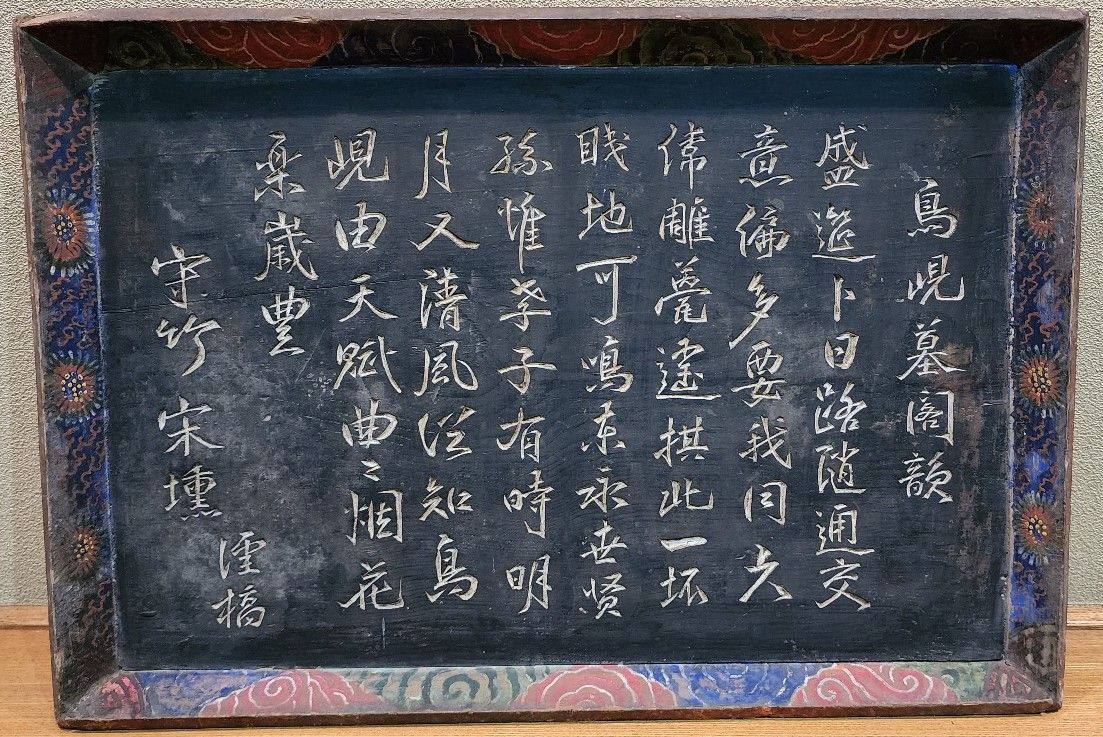 鳥峴墓閣韻
盛筵卜日路隨通交
意偏多要我同
雕甍 拱此一坏
賤地可鳴東永世賢
孫惟孝子有時明
月又清風從知鳥
峴由天賦曲〻烟花
樂歲豊
守竹宋壎
謹稿